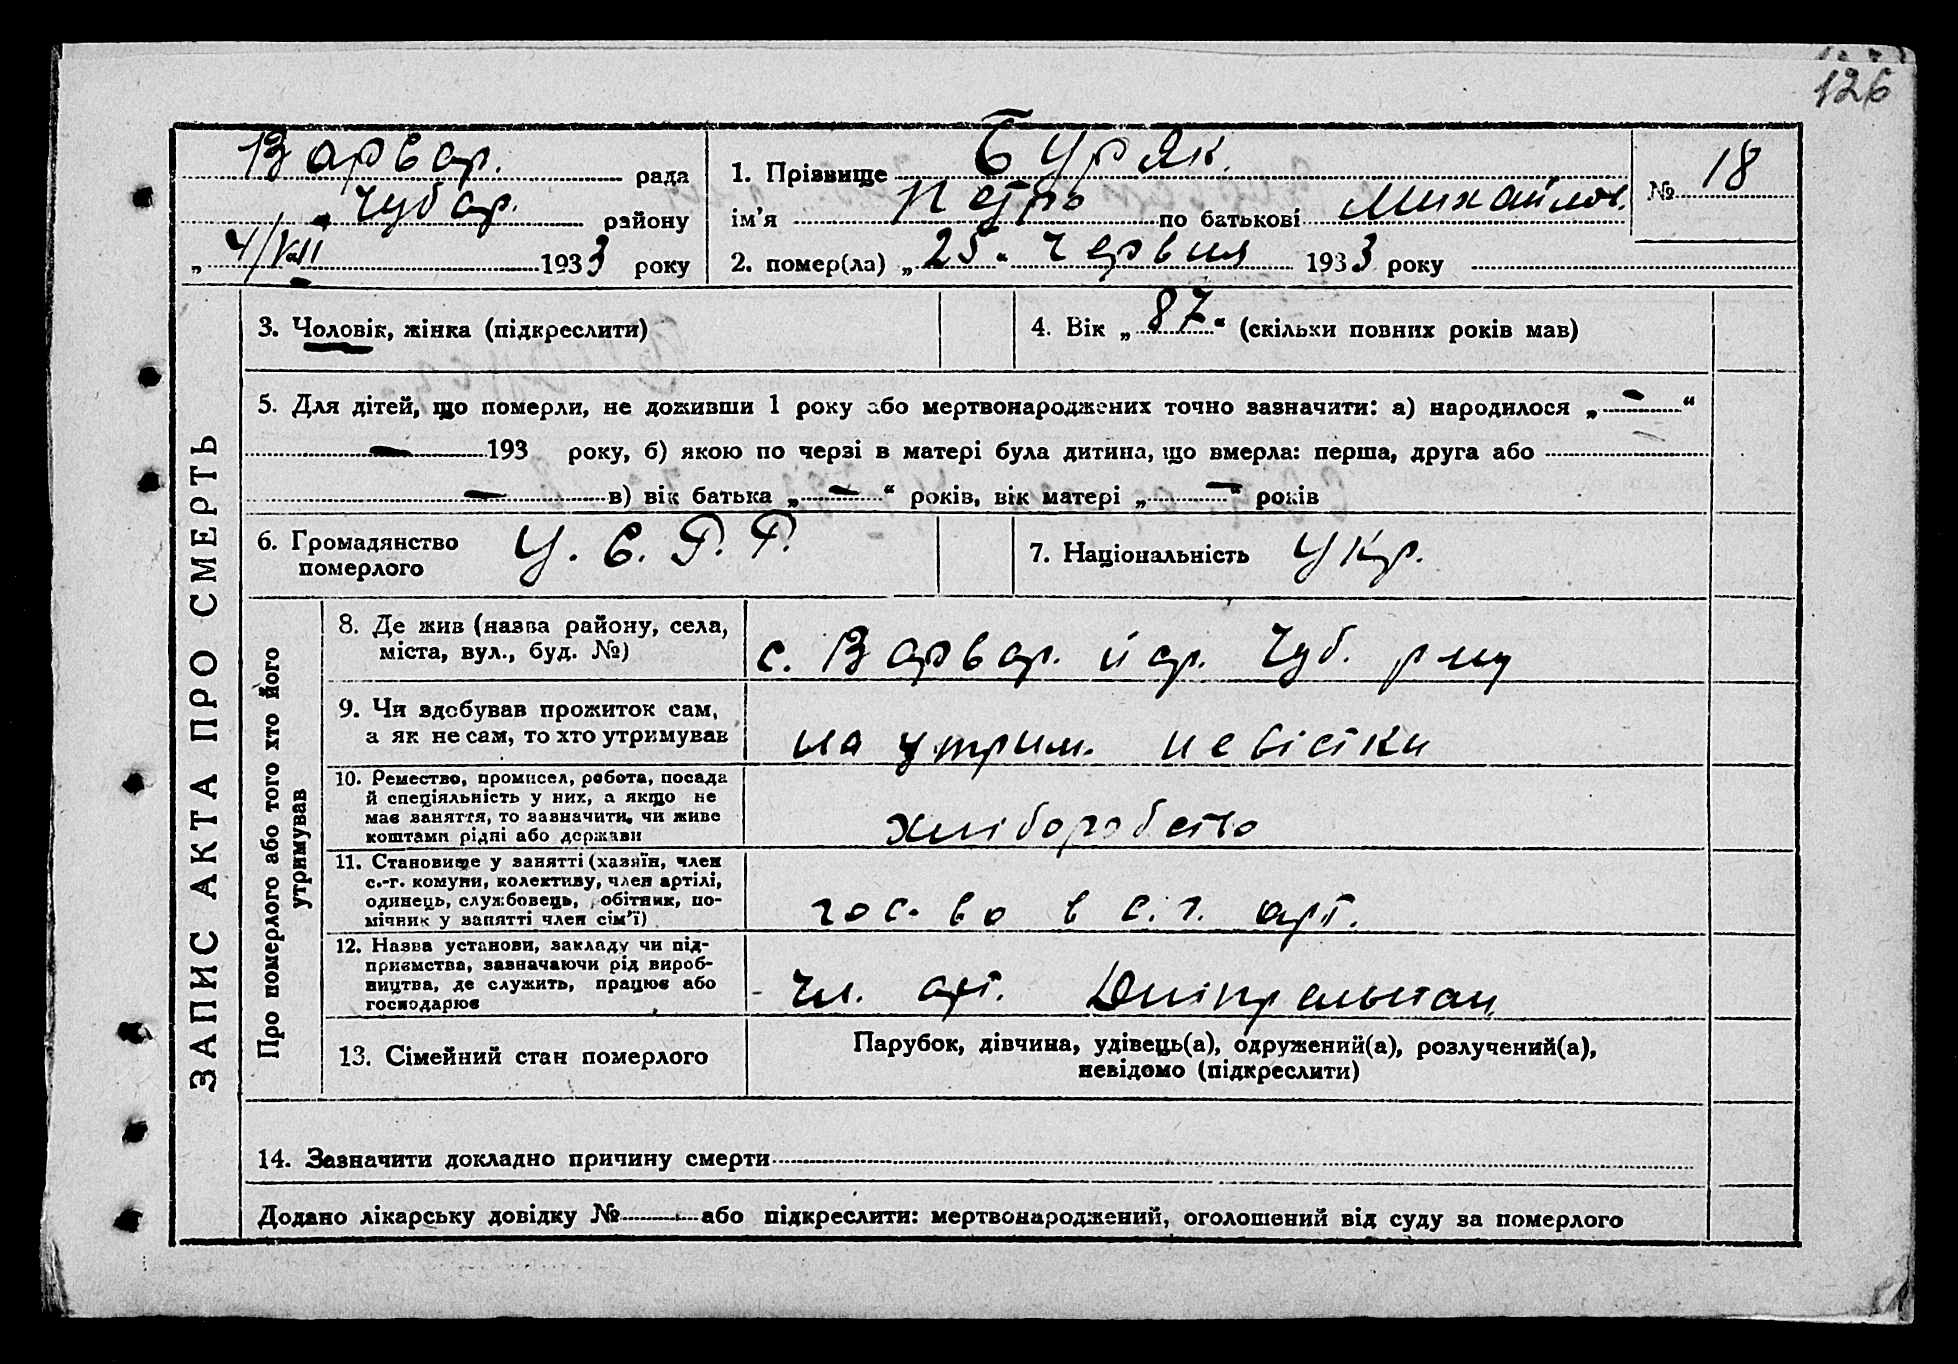 126
Варвар. рада
Чубар. району
„ 4/VII 1933 року
1. Прізвище Буряк
ім'я Петро по батькові Михайлов.
2. помер(ла) „ 25 " червня 1933 року
№ 18
ЗАПИС АКТА ПРО СМЕРТЬ
3. Чоловік, жінка (підкреслити)
4. Вік „ 87 " (скільки повних років мав)
5. Для дітей, що померли, не доживши 1 року або мертвонароджених точно зазначити: а) народилося „ - "
- 193 року, б) якою по черзі в матері була дитина, що вмерла: перша, друга або
- в) вік батька „ - " років, вік матері „ - " років
6. Громадянство
померлого
У. С. Р. Р.
7. Національність Укр.
Про померлого або того хто його
утримував
8. Де жив (назва району, села,
міста, вул., буд. №)
с. Варвар. Чуб. р-ну
9. Чи здобував прожиток сам,
а як не сам, то хто утримував
на утрим. невістки
10. Ремество, промисел, робота, посада
й спеціяльність у них, а якщо не
має заняття, то зазначити, чи живе
коштами рідні або держави
хліборобство
11. Становище у занятті (хазяїн, член
с.-г. комуни, колективу, член артілі,
одинець, службовець, робітник, по-
мічник у занятті член сім'ї)
гос-во в с. г. арт.
12. Назва установи, закладу чи під-
приємства, зазначаючи рід вироб-
ництва, де служить, працює або
господарює
чл. арт. Дніпрельстан
13. Сімейний стан померлого
Парубок, дівчина, удівець(а), одружений(а), розлучений(а),
невідомо (підкреслити)
14. Зазначити докладно причину смерти
Додано лікарську довідку № або підкреслити: мертвонароджений, оголошений від суду за померлого